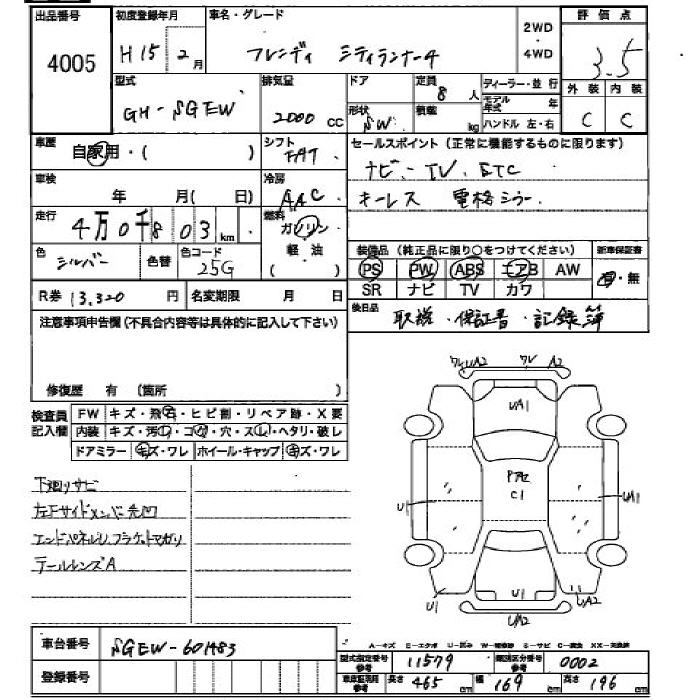 出品番号 4005
初度登録年月 H15 2月
車名・グレード フレンディ シティランナー4
2WD・4WD
評価点 3.5
外装 C 内装 C
型式 GH-SGEW
排気量 2000 cc
ドア
形状 SW
定員 8 人
積載 kg
ディーラー・並行
モデル年式 年
ハンドル 左・右
車歴 自家用・( )
シフト FAT
セールスポイント(正常に機能するものに限ります)
ナビ・TV. ETC
キーレス 電格ミラー
車検 年 月( 日)
冷房 AAC
走行 4万0千803km
燃料 ガソリン・軽油 ( )
色 シルバー 色替
色コード 25G
装備品(純正品に限り○をつけてください)
PS PW ABS エアB AW
SR ナビ TV カワ
新車保証書 有・無
R券 13.320 円 名変期限 月 日
後日品 取説・保証書・記録簿
注意事項申告欄(不具合内容等は具体的に記入して下さい)
修復歴 有 (箇所 )
検査員記入欄
FW キズ・飛石・ヒビ割・リペア跡・X要
内装 キズ・汚れ・コゲ・穴・スレ・ヘタリ・破レ
ドアミラー キズ・ワレ ホイール・キャップ キズ・ワレ
下廻りサビ
左Fサイドメンバー先凹
エンドパネルU, ブラケットマガリ
テールレンズA
UA2 ワレ A2
UA1
PAZ
C1
U1
UA1
U1
U1
UA2
UA2
車台番号 SGEW-601483
登録番号
A-キズ E-エクボ U-凹み W-補修跡 S-サビ C-腐食 XX-交換済
型式指定番号参考 11579 類別区分番号参考 0002
車庫証明用参考 長さ 465 cm 幅 169 cm 高さ 196 cm